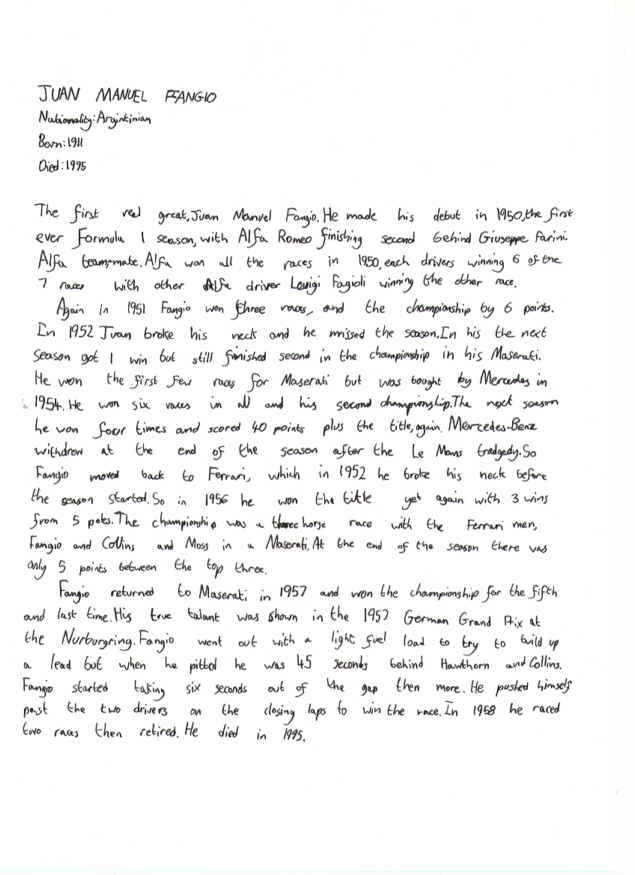 JUAN MANUEL FANGIO
Nationality: Argintinian
Born: 1911
Died: 1995
The first real great, Juan Manuel Fangio. He made his debut in 1950, the first
ever Formula 1 season, with Alfa Romeo finishing second behind Giuseppe Farini.
Alfa team-mate. Alfa won all the races in 1950, each drivers winning 6 of the
7 races with other Alfa driver Louigi Fagioli winning the other race.
Again in 1951 Fangio won three races, and the championship by 6 points.
In 1952 Juan broke his neck and he missed the season. In his the next
season got 1 win but still finished second in the championship in his Maserati.
He won the first few races for Maserati but was bought by Mercedes in
1954. He won six races in all and his second championship. The next season
he won four times and scored 40 points plus the title, again. Mercedes-Benz
withdrew at the end of the season after the Le Mans tradgedy. So
Fangio moved back to Ferrari, which in 1952 he broke his neck before
the season started. So in 1956 he won the title yet again with 3 wins
from 5 poles. The championship was a three horse race with the Ferrari men,
Fangio and Collins and Moss in a Maserati. At the end of the season there was
only 5 points between the top three.
Fangio returned to Maserati in 1957 and won the championship for the fifth
and last time. His true talant was shown in the 1957 German Grand Prix at
the Nurburgring. Fangio went out with a light fuel load to try to build up
a lead but when he pitted he was 45 seconds behind Hawthorn and Collins.
Fangio started taking six seconds out of the gap then more. He pushed himself
past the two drivers on the closing laps to win the race. In 1958 he raced
two races then retired. He died in 1995.